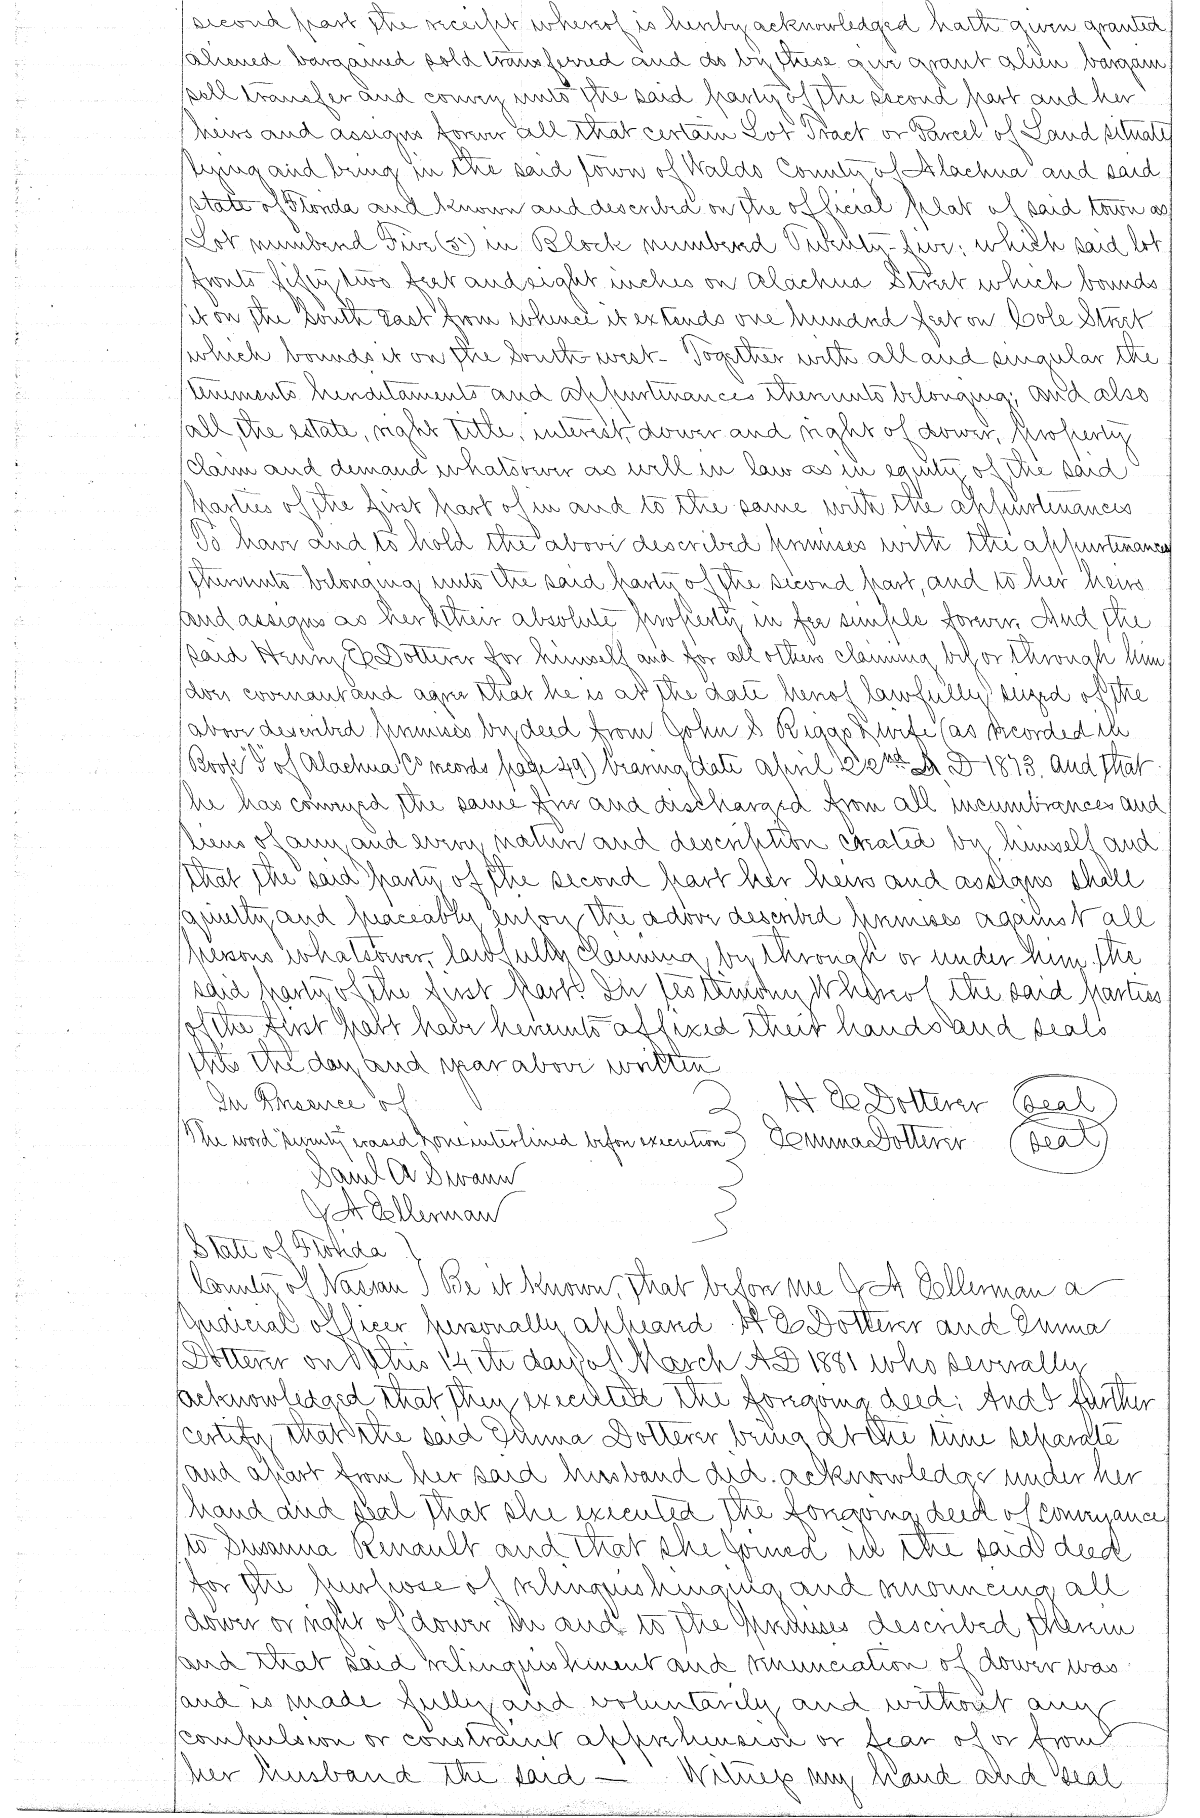 second part the receipt whereof is hereby acknowledged hath given granted
aliened bargained sold transferred and do by these give grant alien bargain
sell transfer and convey unto the said party of the second part and her
heirs and assigns forever all that certain Lot Tract or Parcel of Land situate
lying and being in the said town of Waldo County of Alachua and said
state of Florida and known and described on the official plat of said town as
Lot numbered Five (5) in Block numbered Twenty-five; which said lot
fronts fifty two feet and eight inches on Alachua Street which bounds
it on the South East from whence it extends one hundred feet on Cole Street
which bounds it on the South-west- Together with all and singular the
tenements hereditaments and appurtenances thereunto belonging; and also
all the estate, right title, interest, dower and right of dower, property
claim and demand whatsoever as well in law as in equity of the said
parties of the first part of in and to the same with the appurtenances
To have and to hold the above described premises with the appurtenances
thereunto belonging unto the said party of the second part, and to her heirs
and assigns as her & their absolute property in fee simple forever. And the
said Henry E Dotterer for himself and for all others claiming by, or through him
does covenant and agree that he is at the date hereof lawfully seized of the
above described premises by deed from John S Riggs & wife (as recorded in
Book "I" of Alachua Co records page 49) bearing date april 22nd A D 1873. and that
he has conveyed the same free and discharged from all incumbrances and
liens of any and every nature and description created by himself and
that the said party of the second part her heirs and assigns shall
quietly and peaceably enjoy the above described premises against all
persons whatsoever, lawfully claiming by through or under him the
said party of the first part. In testimony Whereof the said parties
of the first part have hereunto affixed their hands and seals
this the day and year above written
In Presence of H E Dotterer (seal)
The word "seventy" erased & one interlined before execution Emma Dotterer (seal)
Saml A Swann
J A Ellerman
State of Florida }
County of Nassau } Be it known, that before me J A Ellerman a
Judicial officer personally appeared H E Dotterer and Emma
Dotterer on this 14th day of March AD 1881 who severally
acknowledged that they executed the foregoing deed; And I further
certify that the said Emma Dotterer being at the time separate
and apart from her said husband did acknowledge under her
hand and seal that she executed the foregoing deed of conveyance
to Susanna Renault and that she joined in the said deed
for the purpose of relinquishinging and renouncing all
dower or right of dower in and to the premises described therein
and that said relinquishment and renunciation of dower was
and is made fully and voluntarily and without any
compulsion or constraint apprehension or fear of or from
her husband the said — Witness my hand and seal